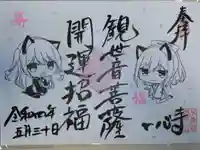 奉拝
観世音菩薩
開運招福
令和四年
五月三十日